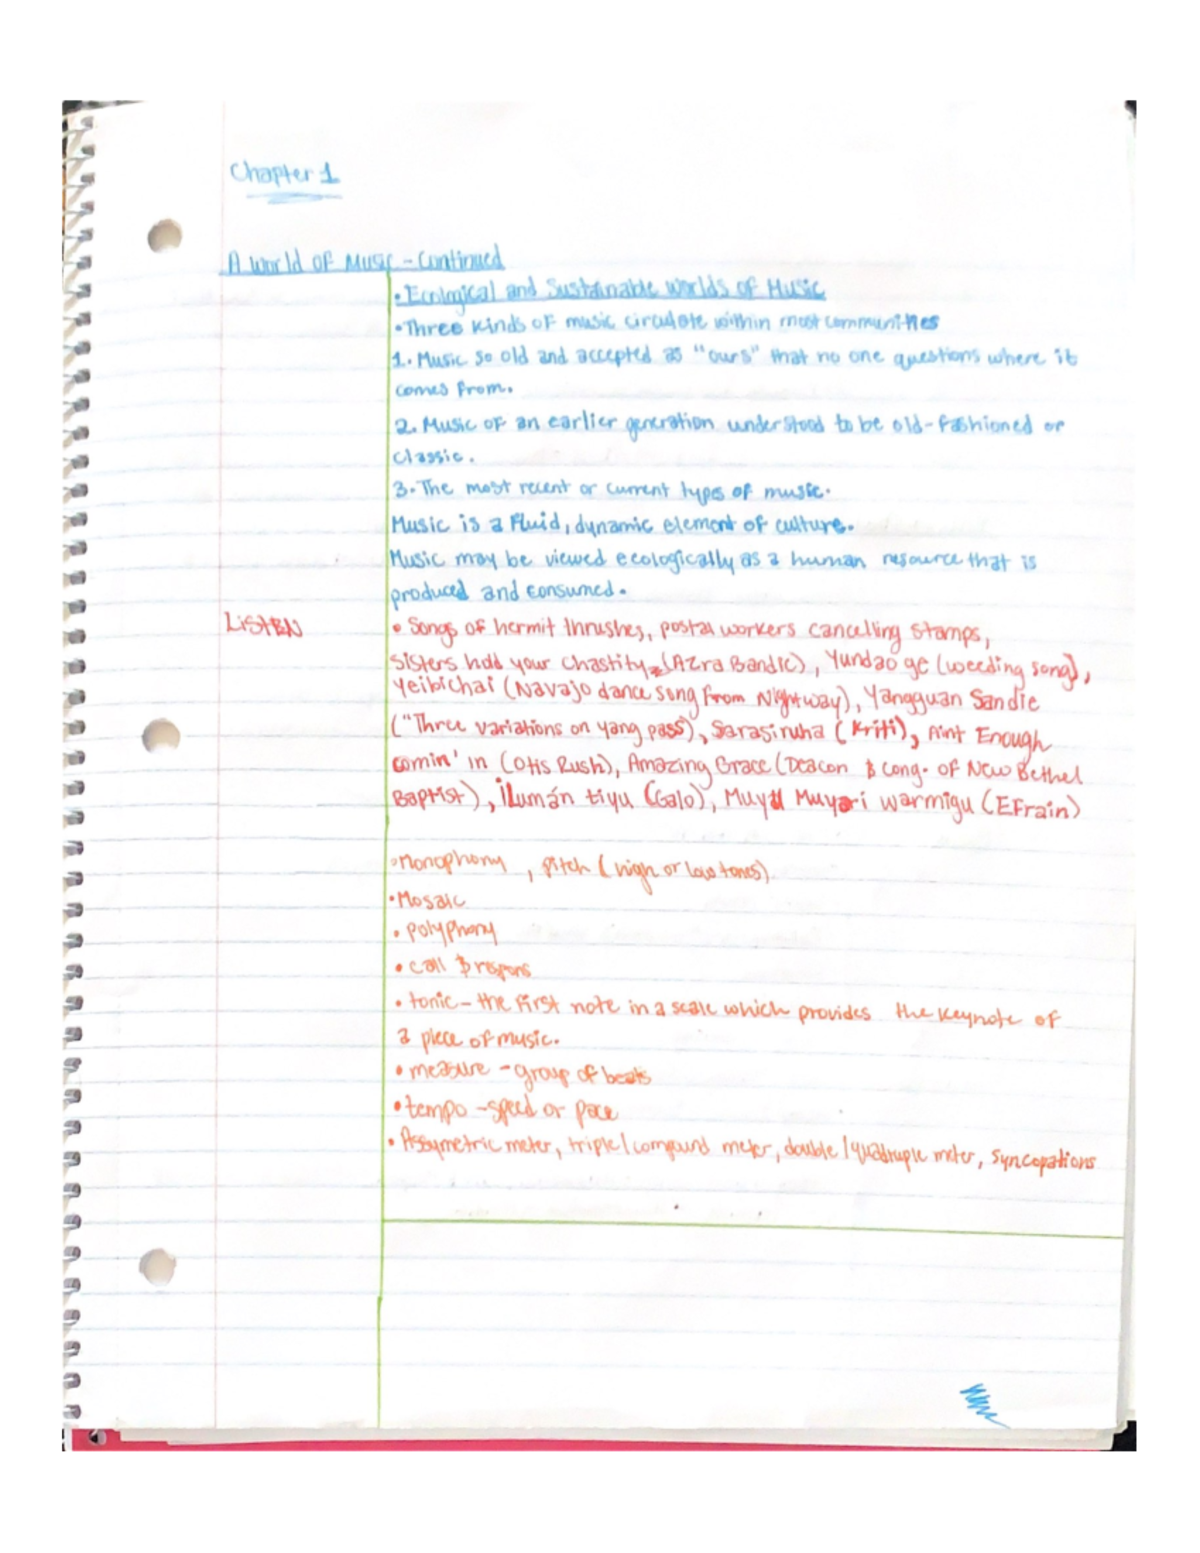 Chapter 1
A World of Music - Continued
• Ecological and Sustainable worlds of Music
• Three kinds of music circulate within most communities
1. Music so old and accepted as "ours" that no one questions where it
comes from.
2. Music of an earlier generation understood to be old-fashioned or
classic.
3. The most recent or current types of music.
Music is a fluid, dynamic element of culture.
Music may be viewed ecologically as a human resource that is
produced and consumed.
LiSTEN
• Songs of hermit thrushes, postal workers cancelling stamps,
Sisters hold your chastity (Azra Bandic), Yundao ge (weeding song),
Yeibichai (Navajo dance song from Nightway), Yangguan Sandie
("Three variations on yang pass), Sarasiruha (Kriti), Aint Enough
comin' in (Otis Rush), Amazing Grace (Deacon & Cong. of New Bethel
Baptist), iLumán tiyu (Galo), Muyu Muyari warmigu (Efrain)
• Monophony , pitch (high or low tones)
• Mosaic
• polyphony
• call & respons
• tonic - the first note in a scale which provides the keynote of
a piece of music.
• measure - group of beats
• tempo - speed or pace
• Assymetric meter, triple/compound meter, double/quadruple meter, syncopations